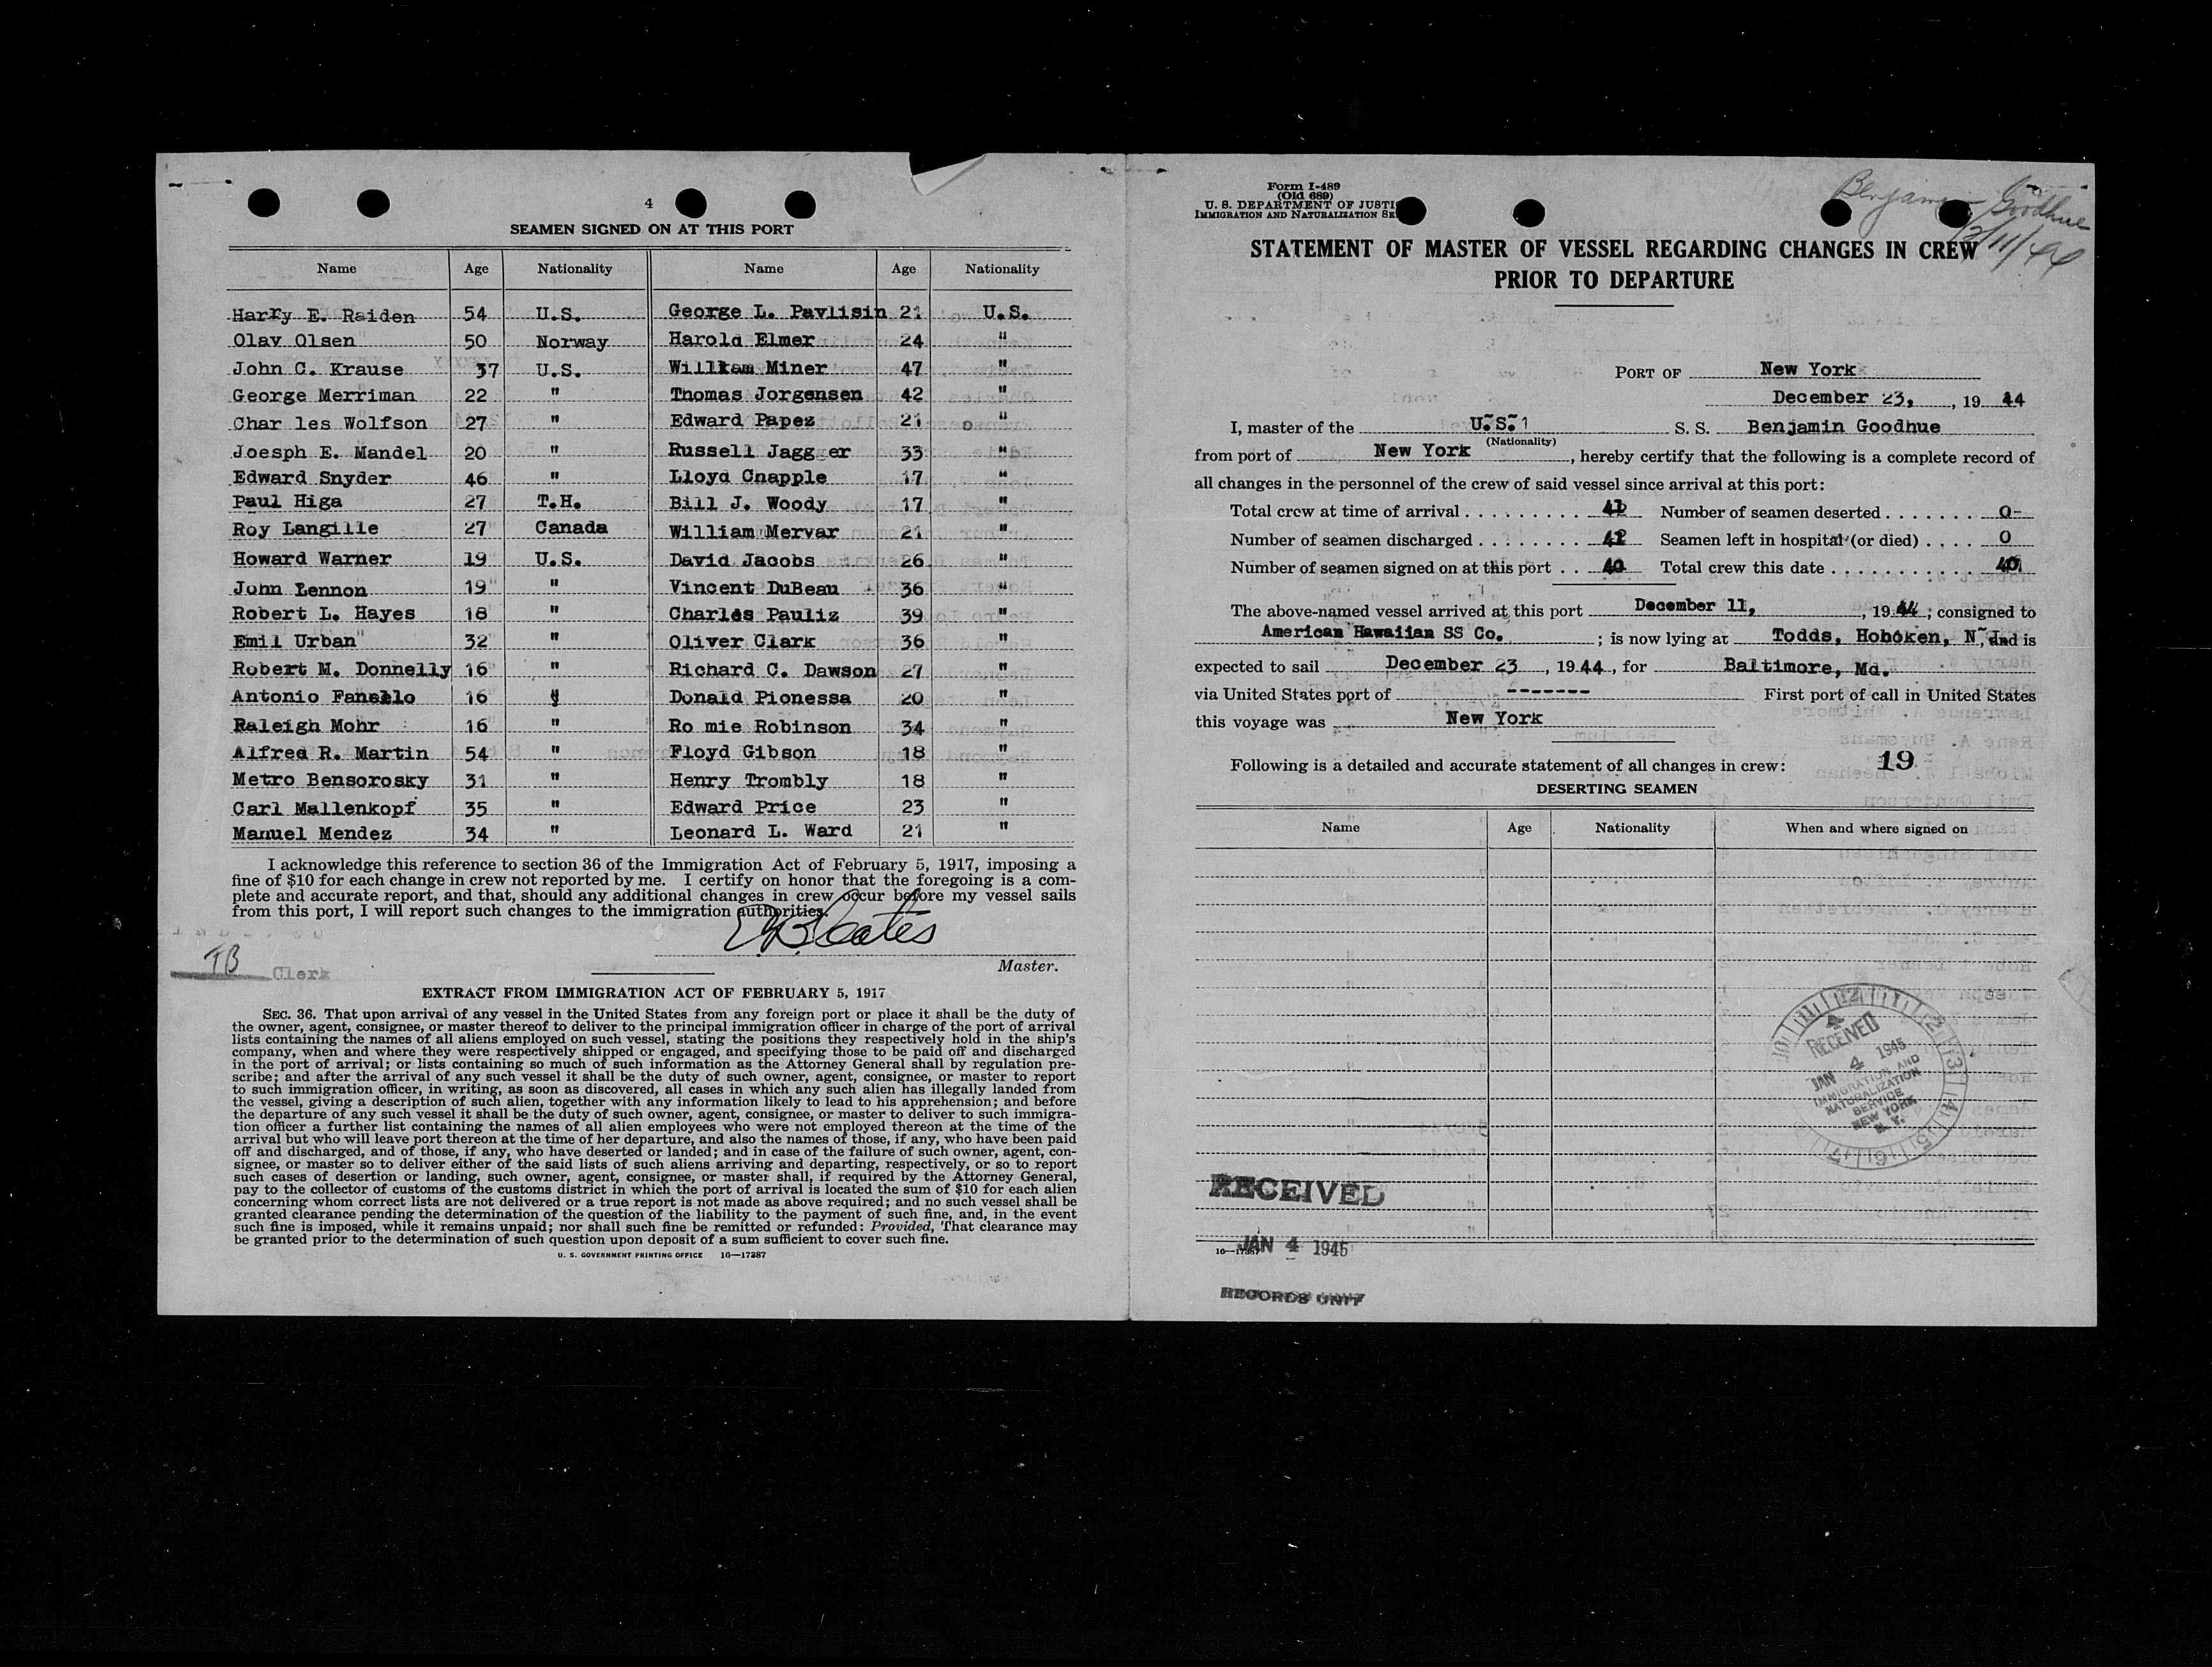 4
SEAMEN SIGNED ON AT THIS PORT
Name Age Nationality Name Age Nationality
Harry E. Raiden 54 U.S. George L. Pavlisin 21 U.S.
Olav Olsen 50 Norway Harold Elmer 24 "
John C. Krause 37 U.S. William Miner 47 "
George Merriman 22 " Thomas Jorgensen 42 "
Char les Wolfson 27 " Edward Papez 21 "
Joesph E. Mandel 20 " Russell Jagg er 33 "
Edward Snyder 46 " Lloyd Cnapple 17 "
Paul Higa 27 T.H. Bill J. Woody 17 "
Roy Langille 27 Canada William Mervar 21 "
Howard Warner 19 U.S. David Jacobs 26 "
John Lennon 19 " Vincent DuBeau 36 "
Robert L. Hayes 18 " Charles Pauliz 39 "
Emil Urban 32 " Oliver Clark 36 "
Robert M. Donnelly 16 " Richard C. Dawson 27 "
Antonio Fanello 16 " Donald Pionessa 20 "
Raleigh Mohr 16 " Ro mie Robinson 34 "
Alfred R. Martin 54 " Floyd Gibson 18 "
Metro Bensorosky 31 " Henry Trombly 18 "
Carl Mallenkopf 35 " Edward Price 23 "
Manuel Mendez 34 " Leonard L. Ward 21 "
I acknowledge this reference to section 36 of the Immigration Act of February 5, 1917, imposing a
fine of $10 for each change in crew not reported by me. I certify on honor that the foregoing is a com-
plete and accurate report, and that, should any additional changes in crew occur before my vessel sails
from this port, I will report such changes to the immigration authorities.
TB Clerk
Master.
EXTRACT FROM IMMIGRATION ACT OF FEBRUARY 5, 1917
SEC. 36. That upon arrival of any vessel in the United States from any foreign port or place it shall be the duty of
the owner, agent, consignee, or master thereof to deliver to the principal immigration officer in charge of the port of arrival
lists containing the names of all aliens employed on such vessel, stating the positions they respectively hold in the ship's
company, when and where they were respectively shipped or engaged, and specifying those to be paid off and discharged
in the port of arrival; or lists containing so much of such information as the Attorney General shall by regulation pre-
scribe; and after the arrival of any such vessel it shall be the duty of such owner, agent, consignee, or master to report
to such immigration officer, in writing, as soon as discovered, all cases in which any such alien has illegally landed from
the vessel, giving a description of such alien, together with any information likely to lead to his apprehension; and before
the departure of any such vessel it shall be the duty of such owner, agent, consignee, or master to deliver to such immigra-
tion officer a further list containing the names of all alien employees who were not employed thereon at the time of the
arrival but who will leave port thereon at the time of her departure, and also the names of those, if any, who have been paid
off and discharged, and of those, if any, who have deserted or landed; and in case of the failure of such owner, agent, con-
signee, or master so to deliver either of the said lists of such aliens arriving and departing, respectively, or so to report
such cases of desertion or landing, such owner, agent, consignee, or master shall, if required by the Attorney General,
pay to the collector of customs of the customs district in which the port of arrival is located the sum of $10 for each alien
concerning whom correct lists are not delivered or a true report is not made as above required; and no such vessel shall be
granted clearance pending the determination of the question of the liability to the payment of such fine, and, in the event
such fine is imposed, while it remains unpaid; nor shall such fine be remitted or refunded: Provided, That clearance may
be granted prior to the determination of such question upon deposit of a sum sufficient to cover such fine.
U. S. GOVERNMENT PRINTING OFFICE 16—17387
Form I-489
(Old 689)
U. S. DEPARTMENT OF JUSTI
IMMIGRATION AND NATURALIZATION SE
Benjamin Goodhue
12/11/44
STATEMENT OF MASTER OF VESSEL REGARDING CHANGES IN CREW
PRIOR TO DEPARTURE
PORT OF New York
December 23, , 19 44
I, master of the U.S. S. S. Benjamin Goodhue
(Nationality)
from port of New York , hereby certify that the following is a complete record of
all changes in the personnel of the crew of said vessel since arrival at this port:
Total crew at time of arrival . . . . . . . . . Number of seamen deserted . . . . . . . 0-
Number of seamen discharged . . . . . . . . Seamen left in hospital (or died) . . . . 0
Number of seamen signed on at this port . . 40 Total crew this date . . . . . . . . . . . . 40
The above-named vessel arrived at this port December 11, , 1944 ; consigned to
American Hawaiian SS Co. ; is now lying at Todds, Hoboken, N.J. and is
expected to sail December 23 , 1944 , for Baltimore, Md.
via United States port of ------- First port of call in United States
this voyage was New York
Following is a detailed and accurate statement of all changes in crew: 19
DESERTING SEAMEN
Name Age Nationality When and where signed on
RECEIVED
JAN 4 1945
IMMIGRATION AND
NATURALIZATION
SERVICE
NEW YORK
N. Y.
RECEIVED
16—17387 JAN 4 1945
RECORDS UNIT